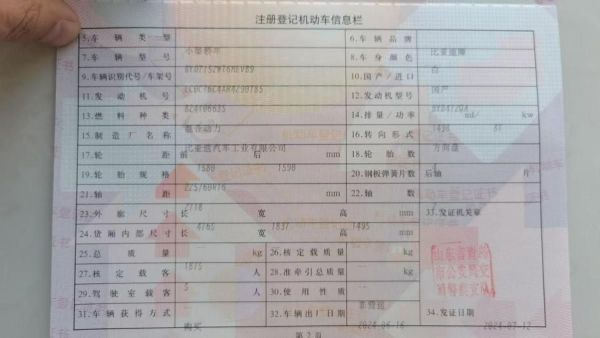 注册登记机动车信息栏
5.车辆类型 小型轿车 6.车辆品牌 比亚迪牌
7.车辆型号 8.车身颜色 白
9.车辆识别代号/车架号 10.国产/进口 国产
11.发动机号 12.发动机型号
13.燃料种类 混合动力 14.排量/功率 ml/ kw
15.制造厂名称 比亚迪汽车工业有限公司 16.转向形式 方向盘
17.轮距 前 1580 后 1590 mm 18.轮胎数 4
19.轮胎规格 225/60R16 20.钢板弹簧片数 后轴 片
21.轴距 2718 mm 22.轴数 2
23.外廓尺寸 长 4765 宽 1837 高 1495 mm 33.发证机关章
24.货厢内部尺寸 长 宽 高 mm
25.总质量 1875 kg 26.核定载质量 kg
27.核定载客 5 人 28.准牵引总质量 kg
29.驾驶室载客 人 30.使用性质 非营运
31.车辆获得方式 购买 32.车辆出厂日期 2024-06-16 34.发证日期 2024-07-12
第2页